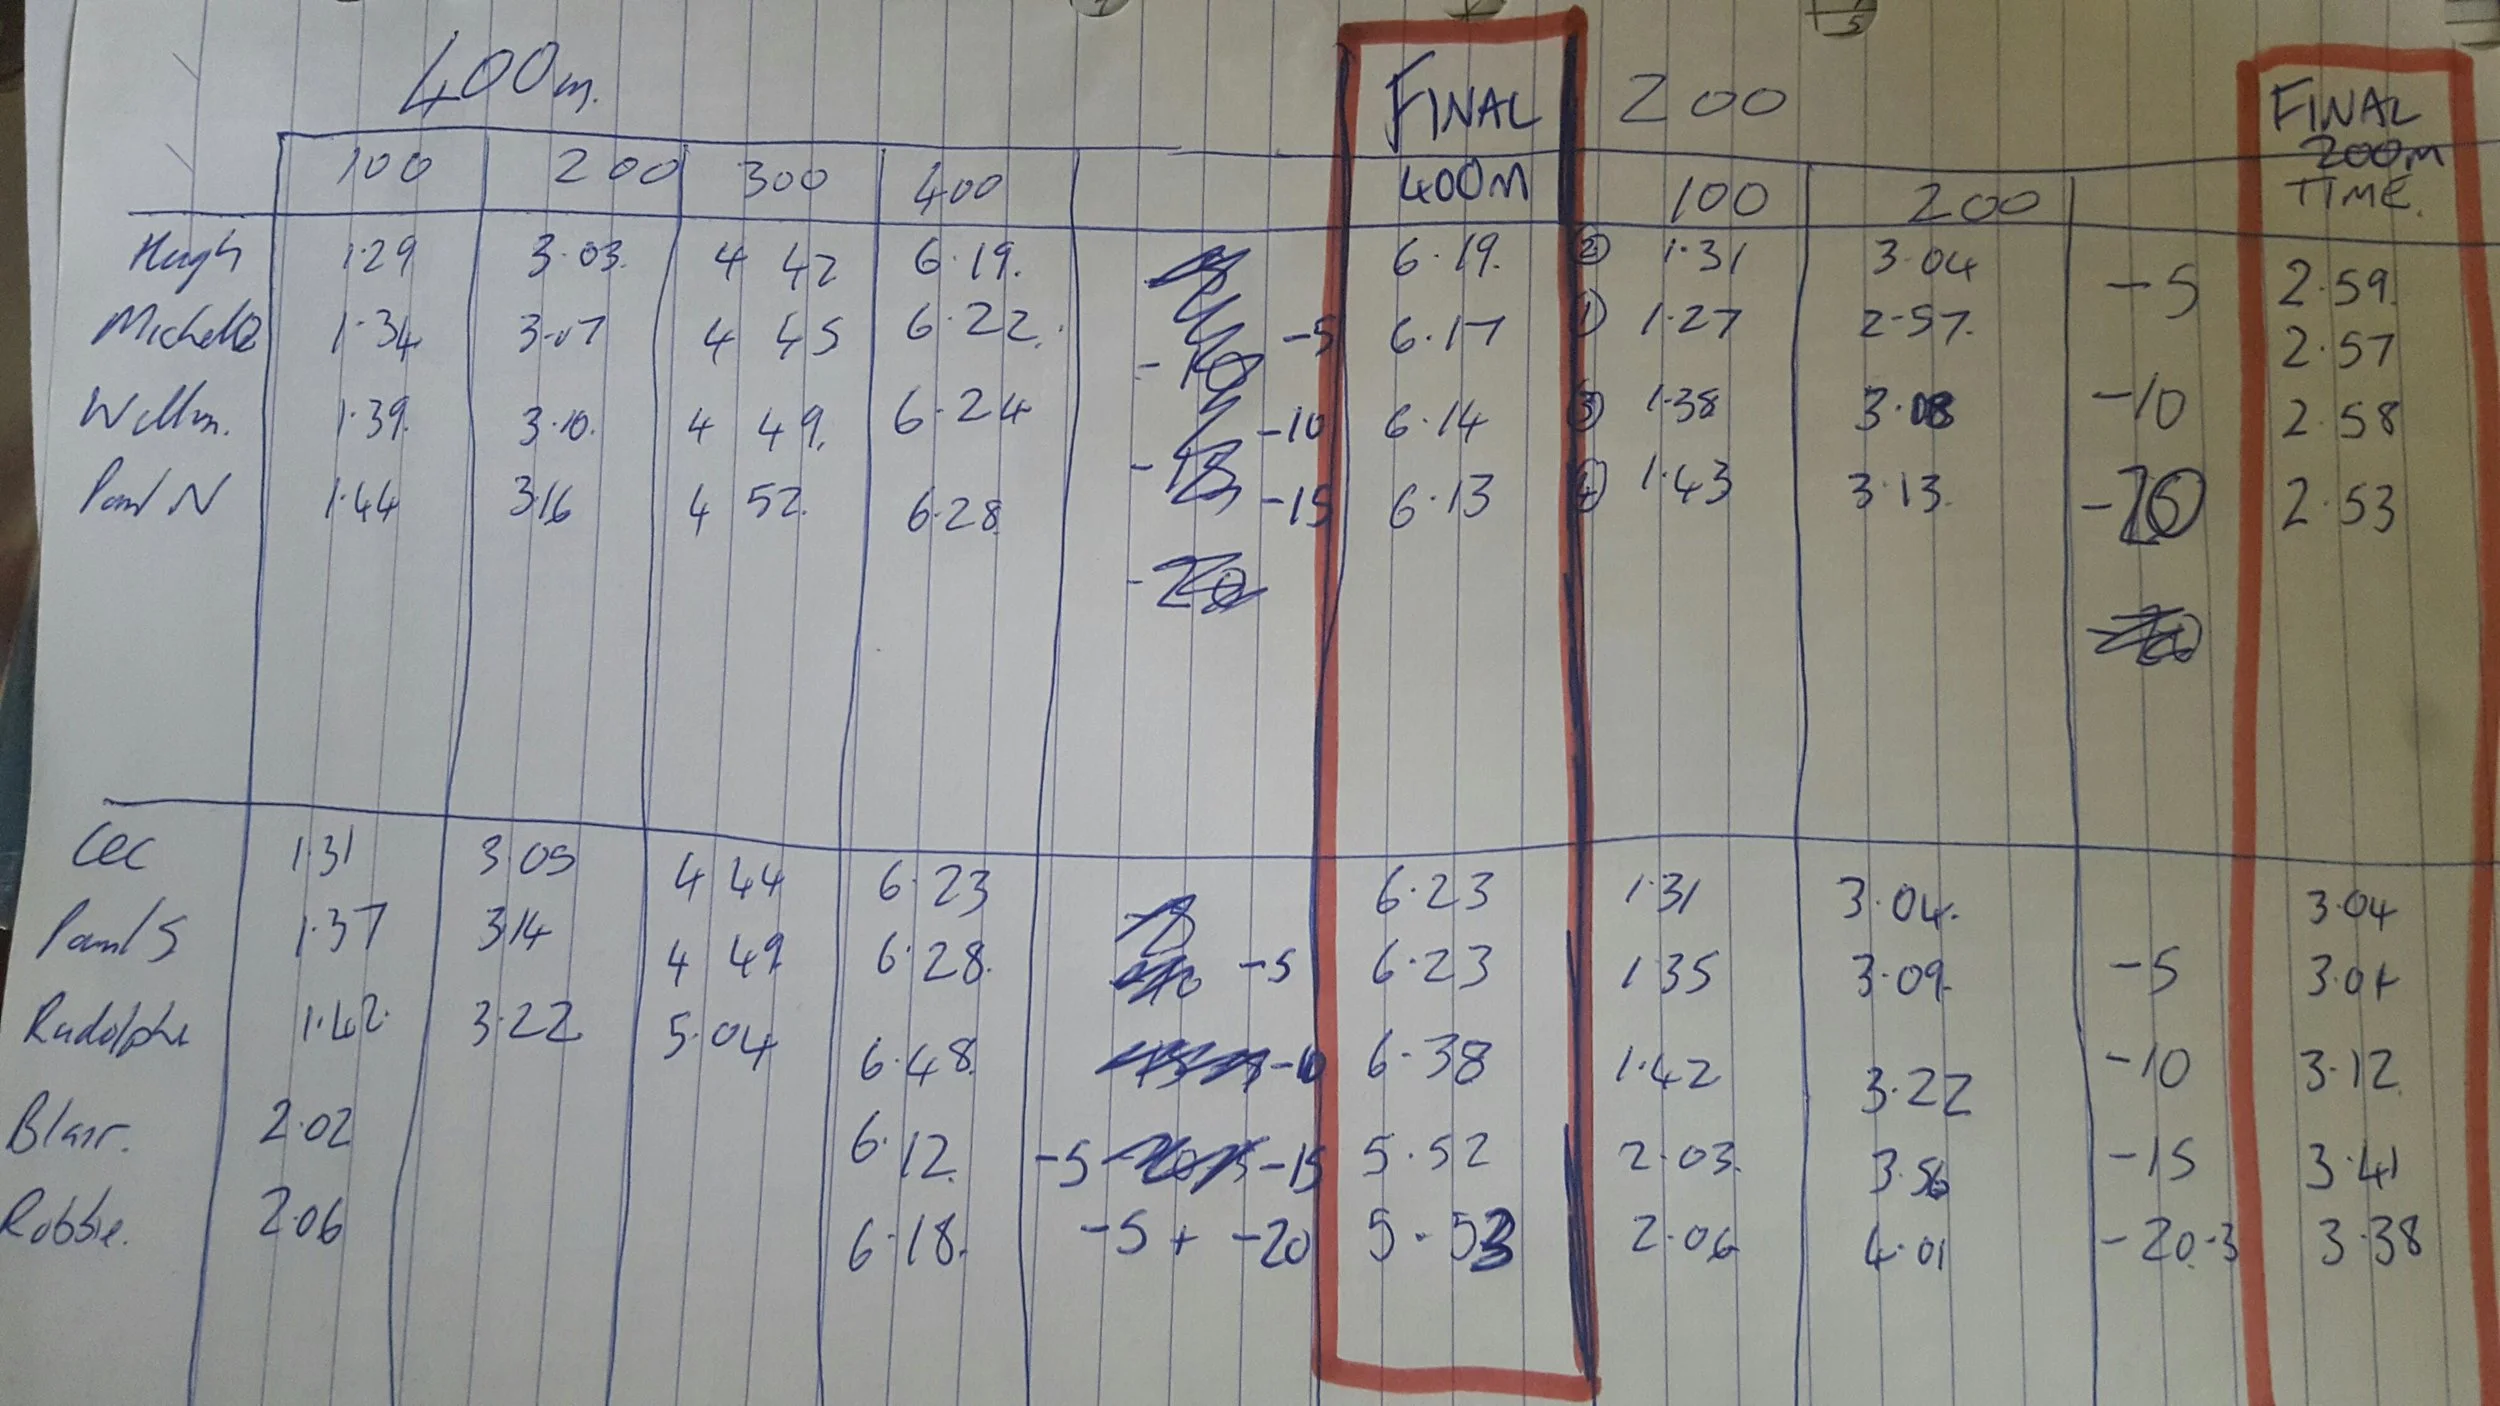 400m. FINAL 200 FINAL
100 200 300 400 400M 100 200 200M TIME.
Hugh 1.29 3.03. 4 42 6.19. 6.19. ② 1.31 3.04 -5 2.59.
Michelle 1.34 3.07 4 45 6.22. -5 6.17 ① 1.27 2.57. 2.57
-10
Willm. 1.39. 3.10. 4 49. 6.24 -10 6.14 ③ 1.38 3.08 -10 2.58
Paul N 1.44 3.16 4 52. 6.28 -15 6.13 ④ 1.43 3.13. 2.53
-20
Cec 1.31 3.05 4 44 6.23 6.23 1.31 3.04. 3.04
Paul S 1.37 3.14 4 49 6.28. -5 6.23 1.35 3.09. -5 3.04
Rudolphe 1.42. 3.22 5.04 6.48. -10 6.38 1.42 3.22 -10 3.12
Blair. 2.02 6.12. -5 -15 5.52 2.03. 3.56 -15 3.41
Robbie. 2.06 6.18. -5 + -20 5.53 2.06 4.01 -20.3 3.38